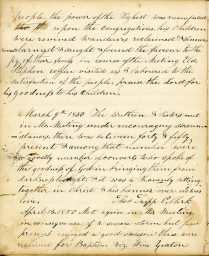 people, the power of the Highest was manifested
upon the congregations, his Children
were revived Wanderers reclaimed & sinners
alarmed & sought & found the saviour to the
joy of their souls in course after Meeting Eld
Stephen coffin visited us & laboured to the
satisfaction of the people praise the Lord for
his goodness to his Children.
March 9th 1850 The Brethren & Sisters met
in Mo. Meeting under encouraging circum
stances, there was between forty & fifty
present & among that number were
a goodly number of converts who spoke of
the goodness of God in bringing them from
darkness to light & it was a Heavenly sitting
together in Christ & his banner over us was
love. Clerk
April 13 1850 Met again in Mo Meeting
in consequence of a severe storm but few
present enjoyed a good season there were
received for Baptism